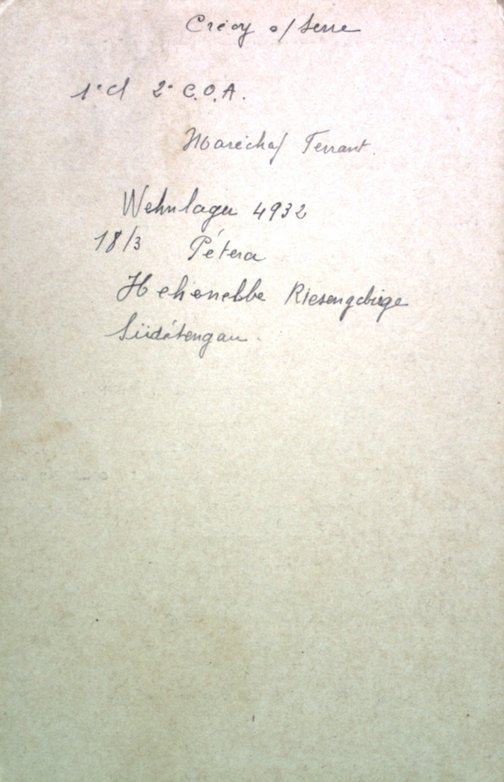 Crécy s/ Serre
1° cl 2° C.O.A.
Maréchal Ferrant.
Wehnlager 4932
18/3 Pétera
Hohenelbe Riesengebirge
Südétengau.